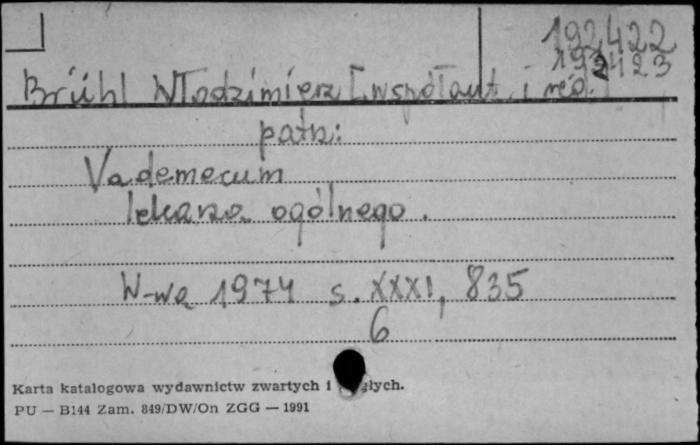 192422
192423
Brühl Włodzimierz [współaut. i red.]
patrz:
Vademecum
lekarza ogólnego.
W-wa 1974 s. XXXI, 835
6
Karta katalogowa wydawnictw zwartych i ciągłych.
PU — B144 Zam. 849/DW/On ZGG — 1991